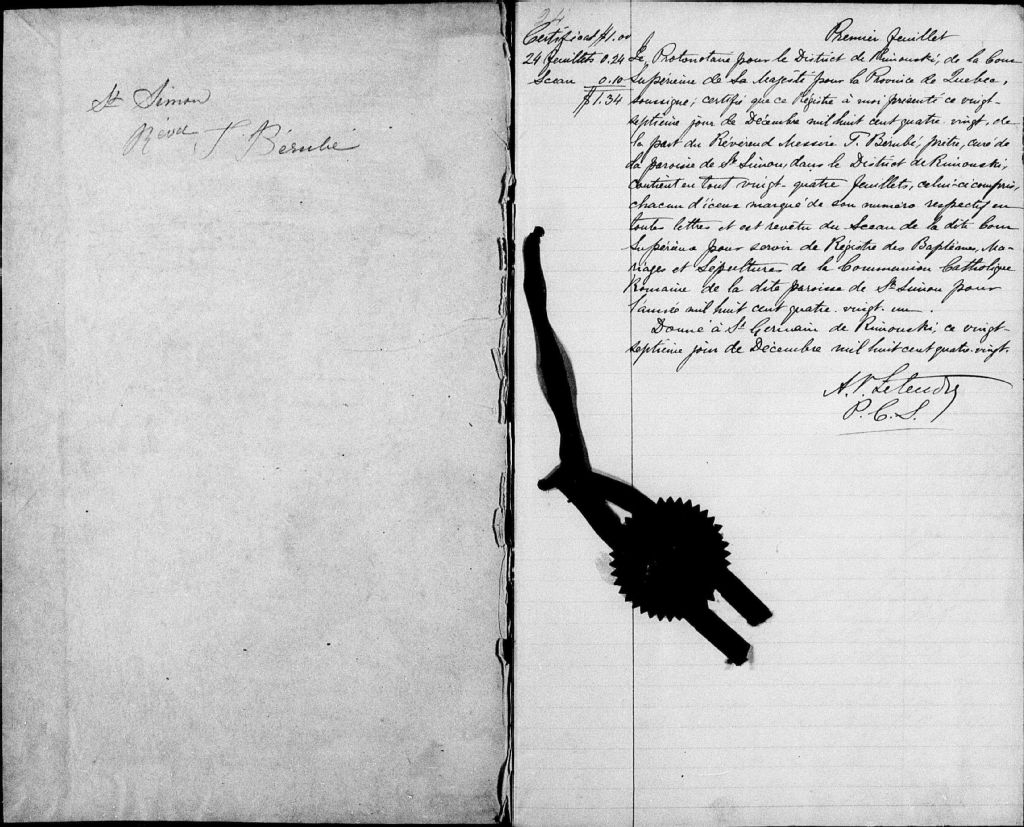 St Simon
Révd T. Bérubé
24
Certificat $1.00
24 feuillets 0.24
Sceau 0.10
$1.34
Premier feuillet
Le Protonotaire pour le District de Rimouski, de la Cour
Supérieure de Sa Majesté pour la Province de Quebec,
soussigné; certifie que ce Régistre à moi présenté ce vingt-
septième jour de Décembre mil huit cent quatre vingt, de
la part du Révérend Messire T. Bérubé, prêtre, curé de
la paroisse de St Simon, dans le District de Rimouski,
contient en tout vingt-quatre feuillets, celui-ci compris,
chacun d'iceux marqué de son numéro respectif en
toutes lettres et est revêtu du Sceau de la dite Cour
Supérieure pour servir de Régistre des Baptêmes, Ma-
riages et Sépultures de la Communion Catholique
Romaine de la dite paroisse de St Simon pour
l'année mil huit cent quatre-vingt-un.
Donné à St Germain de Rimouski, ce vingt-
septième jour de Décembre mil huit cent quatre-vingt.
A. P. Letendre
P. C. S.